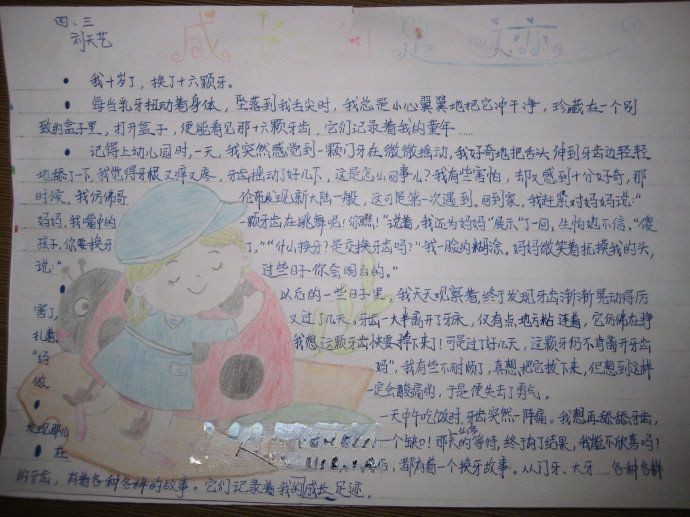 四、三
刘天艺
成长的
我十岁了，换了十六颗牙。
每当乳牙扭动着身体，坠落到我舌尖时，我总是小心翼翼地把它冲干净，珍藏在一个别
致的盒子里，打开盒子，便能看见那十六颗牙齿，它们记录着我的童年……
记得上幼儿园时，一天，我突然感觉到一颗门牙在微微摇动，我好奇地把舌头伸到牙齿边轻轻
地舔了一下，我觉得牙根又痒又疼，牙齿摇动了好几下，这是怎么回事儿？我有些害怕，却又感到十分好奇，那
时候，我仿佛哥 伦布发现新大陆一般，这可是第一次遇到，回到家，我赶紧对妈妈说：“
妈妈，我嘴中的 一颗牙齿在跳舞呢！你瞧！”说着，我还为妈妈“展示”了一回，生怕她不信，“傻
孩子，你要换牙 了。”“什么换牙？是交换牙齿吗？”我一脸的糊涂，妈妈微笑着抚摸我的头，
说：“ 过些日子你会明白的。”
以后的一些日子里，我天天观察着，终于发现牙齿渐渐晃动得厉
害了， 又过了几天，牙齿一大半离开了牙床，仅有点地方粘连着，它仿佛在挣
扎着。 我想这颗牙齿快要掉下来了！可是过了好几天，这颗牙仍不肯离开牙齿
“妈 妈”，我有些不耐烦了，真想把它拔下来，但想到这样
做 一定会酸痛的，于是便失去了勇气。
一天中午吃饭时，牙齿突然一阵痛。我想再舔舔牙齿，
发现那儿 一个缺口！那天的等待，终于有了结果，我能不欣喜吗！
在 后，都有着一个换牙故事。从门牙、大牙……各种各样
的牙齿，有着各种各样的故事。它们记录着我的成长足迹。